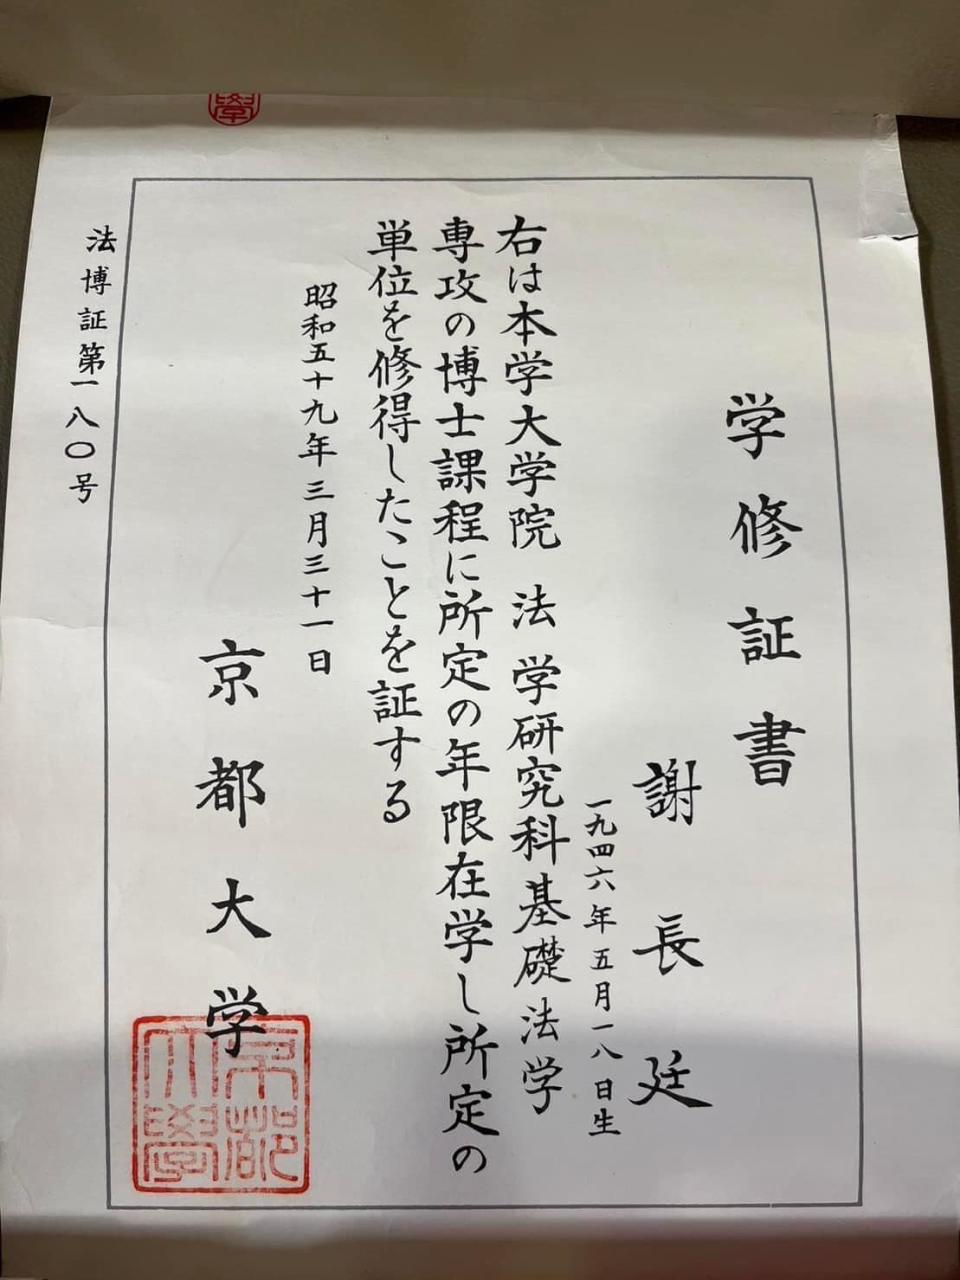 学修証書
謝長廷
一九四六年五月一八日生
右は本学大学院 法学研究科基礎法学
専攻の博士課程に所定の年限在学し所定の
単位を修得したことを証する
昭和五十九年三月三十一日
京都大学
京都大學
法博証第一八〇号
學